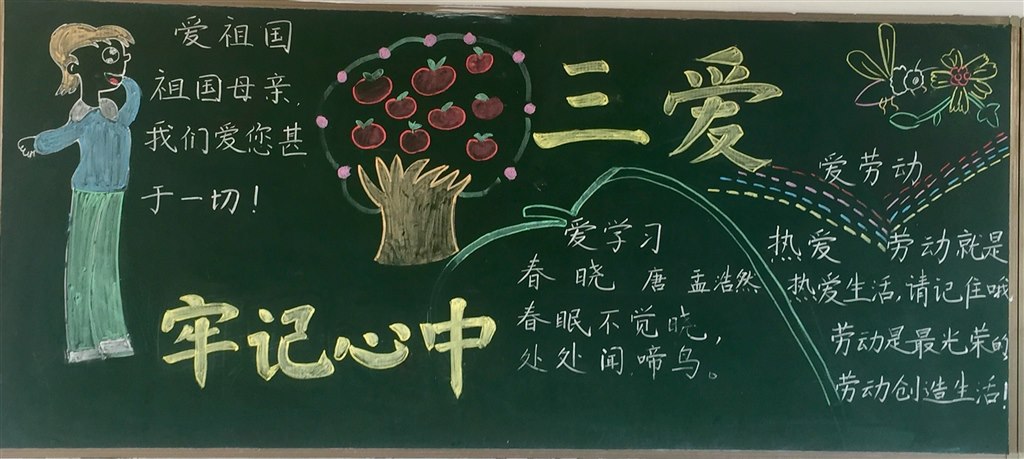 爱祖国
祖国母亲，
我们爱您甚
于一切！
三爱
牢记心中
爱学习
春晓 唐 孟浩然
春眠不觉晓，
处处闻啼鸟。
爱劳动
热爱 劳动就是
热爱生活，请记住哦
劳动是最光荣的
劳动创造生活！